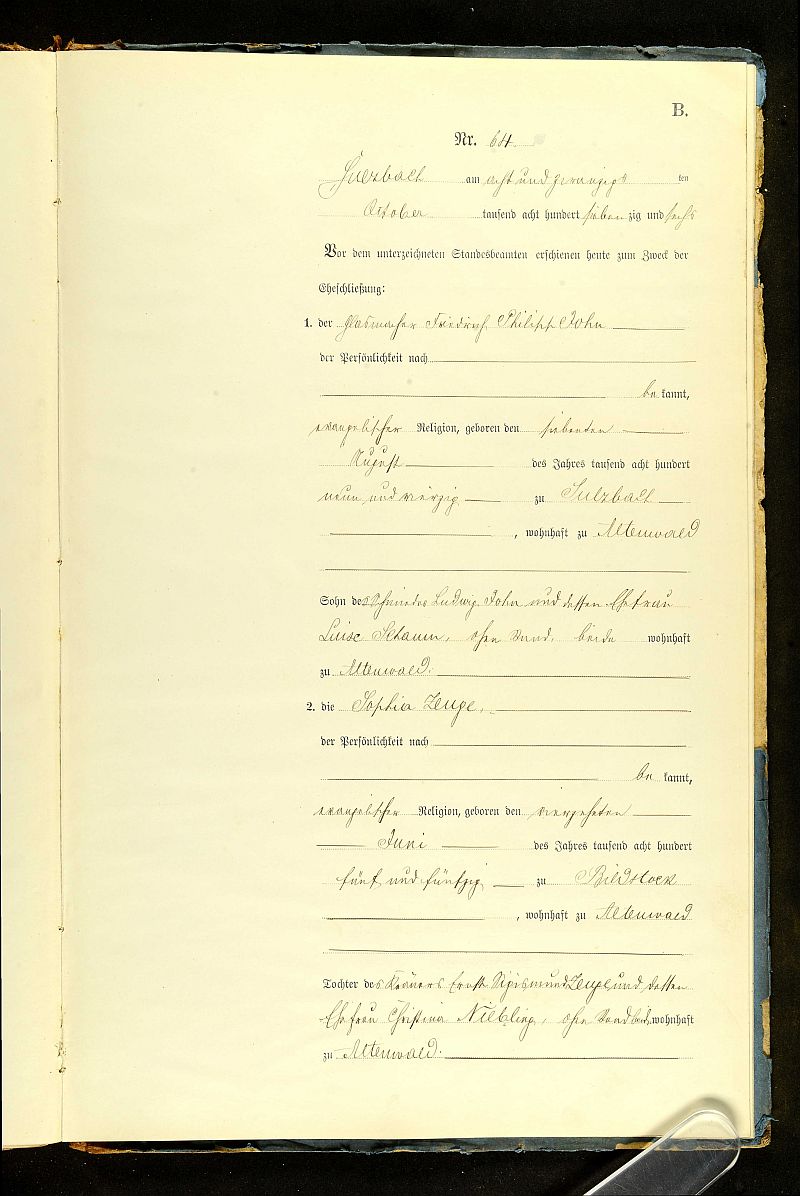 B.
Nr. 64.
Sulzbach am acht und zwanzigs ten
October tausend acht hundert sieben zig und sechs
Vor dem unterzeichneten Standesbeamten erschienen heute zum Zweck der
Eheschließung:
1. der Glasmacher Friedrich Philipp John
der Persönlichkeit nach
be kannt,
evangelischer Religion, geboren den siebenten
August des Jahres tausend acht hundert
neun und vierzig zu Sulzbach
, wohnhaft zu Altenwald
Sohn des Schmiedes Ludwig John und dessen Ehefrau
Luise Schaum, ohne Stand, beide wohnhaft
zu Altenwald.
2. die Sophia Zenge,
der Persönlichkeit nach
be kannt,
evangelischer Religion, geboren den vierzehnten
Juni des Jahres tausend acht hundert
fünf und fünfzig zu Bildstock
, wohnhaft zu Altenwald
Tochter des Krämers Ernst Sigismund Zenge und dessen
Ehefrau Christina Niebling, ohne Stand beide wohnhaft
zu Altenwald.